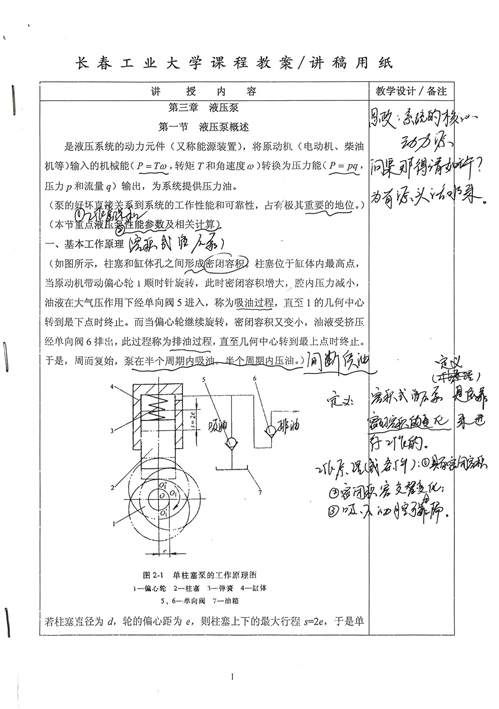 长春工业大学课程教案/讲稿用纸
讲 授 内 容
教学设计/备注
第三章 液压泵
第一节 液压泵概述
是液压系统的动力元件（又称能源装置），将原动机（电动机、柴油
机等）输入的机械能（P = Tω，转矩 T 和角速度 ω）转换为压力能（P = pq，
压力 p 和流量 q）输出，为系统提供压力油。
（泵的好坏直接关系到系统的工作性能和可靠性，占有极其重要的地位。）
①工作原理
（本节重点液压泵性能参数及相关计算）
②
一、基本工作原理（容积式液压泵）
（如图所示，柱塞和缸体孔之间形成密闭容积，柱塞位于缸体内最高点，
当原动机带动偏心轮 1 顺时针旋转，此时密闭容积增大，腔内压力减小，
油液在大气压作用下经单向阀 5 进入，称为吸油过程，直至 1 的几何中心
转到最下点时终止。而当偏心轮继续旋转，密闭容积又变小，油液受挤压
经单向阀 6 排出，此过程称为排油过程，直至几何中心转到最上点时终止。
于是，周而复始，泵在半个周期内吸油、半个周期内压油。）间断供油
思政：系统的核心、
动力源
问渠那得清如许？
为有源头活水来。
4
5
6
3
s=2e
吸油
排油
2
7
1
O
e
图 2-1 单柱塞泵的工作原理图
1—偏心轮 2—柱塞 3—弹簧 4—缸体
5、6—单向阀 7—油箱
定义
定义：容积式液压泵是依靠
密闭容积的变化来进
行工作的。
工作原理（或条件）：①具有密闭容积
②密闭容积交替变化；
③吸、压油腔隔开。
若柱塞直径为 d，轮的偏心距为 e，则柱塞上下的最大行程 s=2e，于是单
1